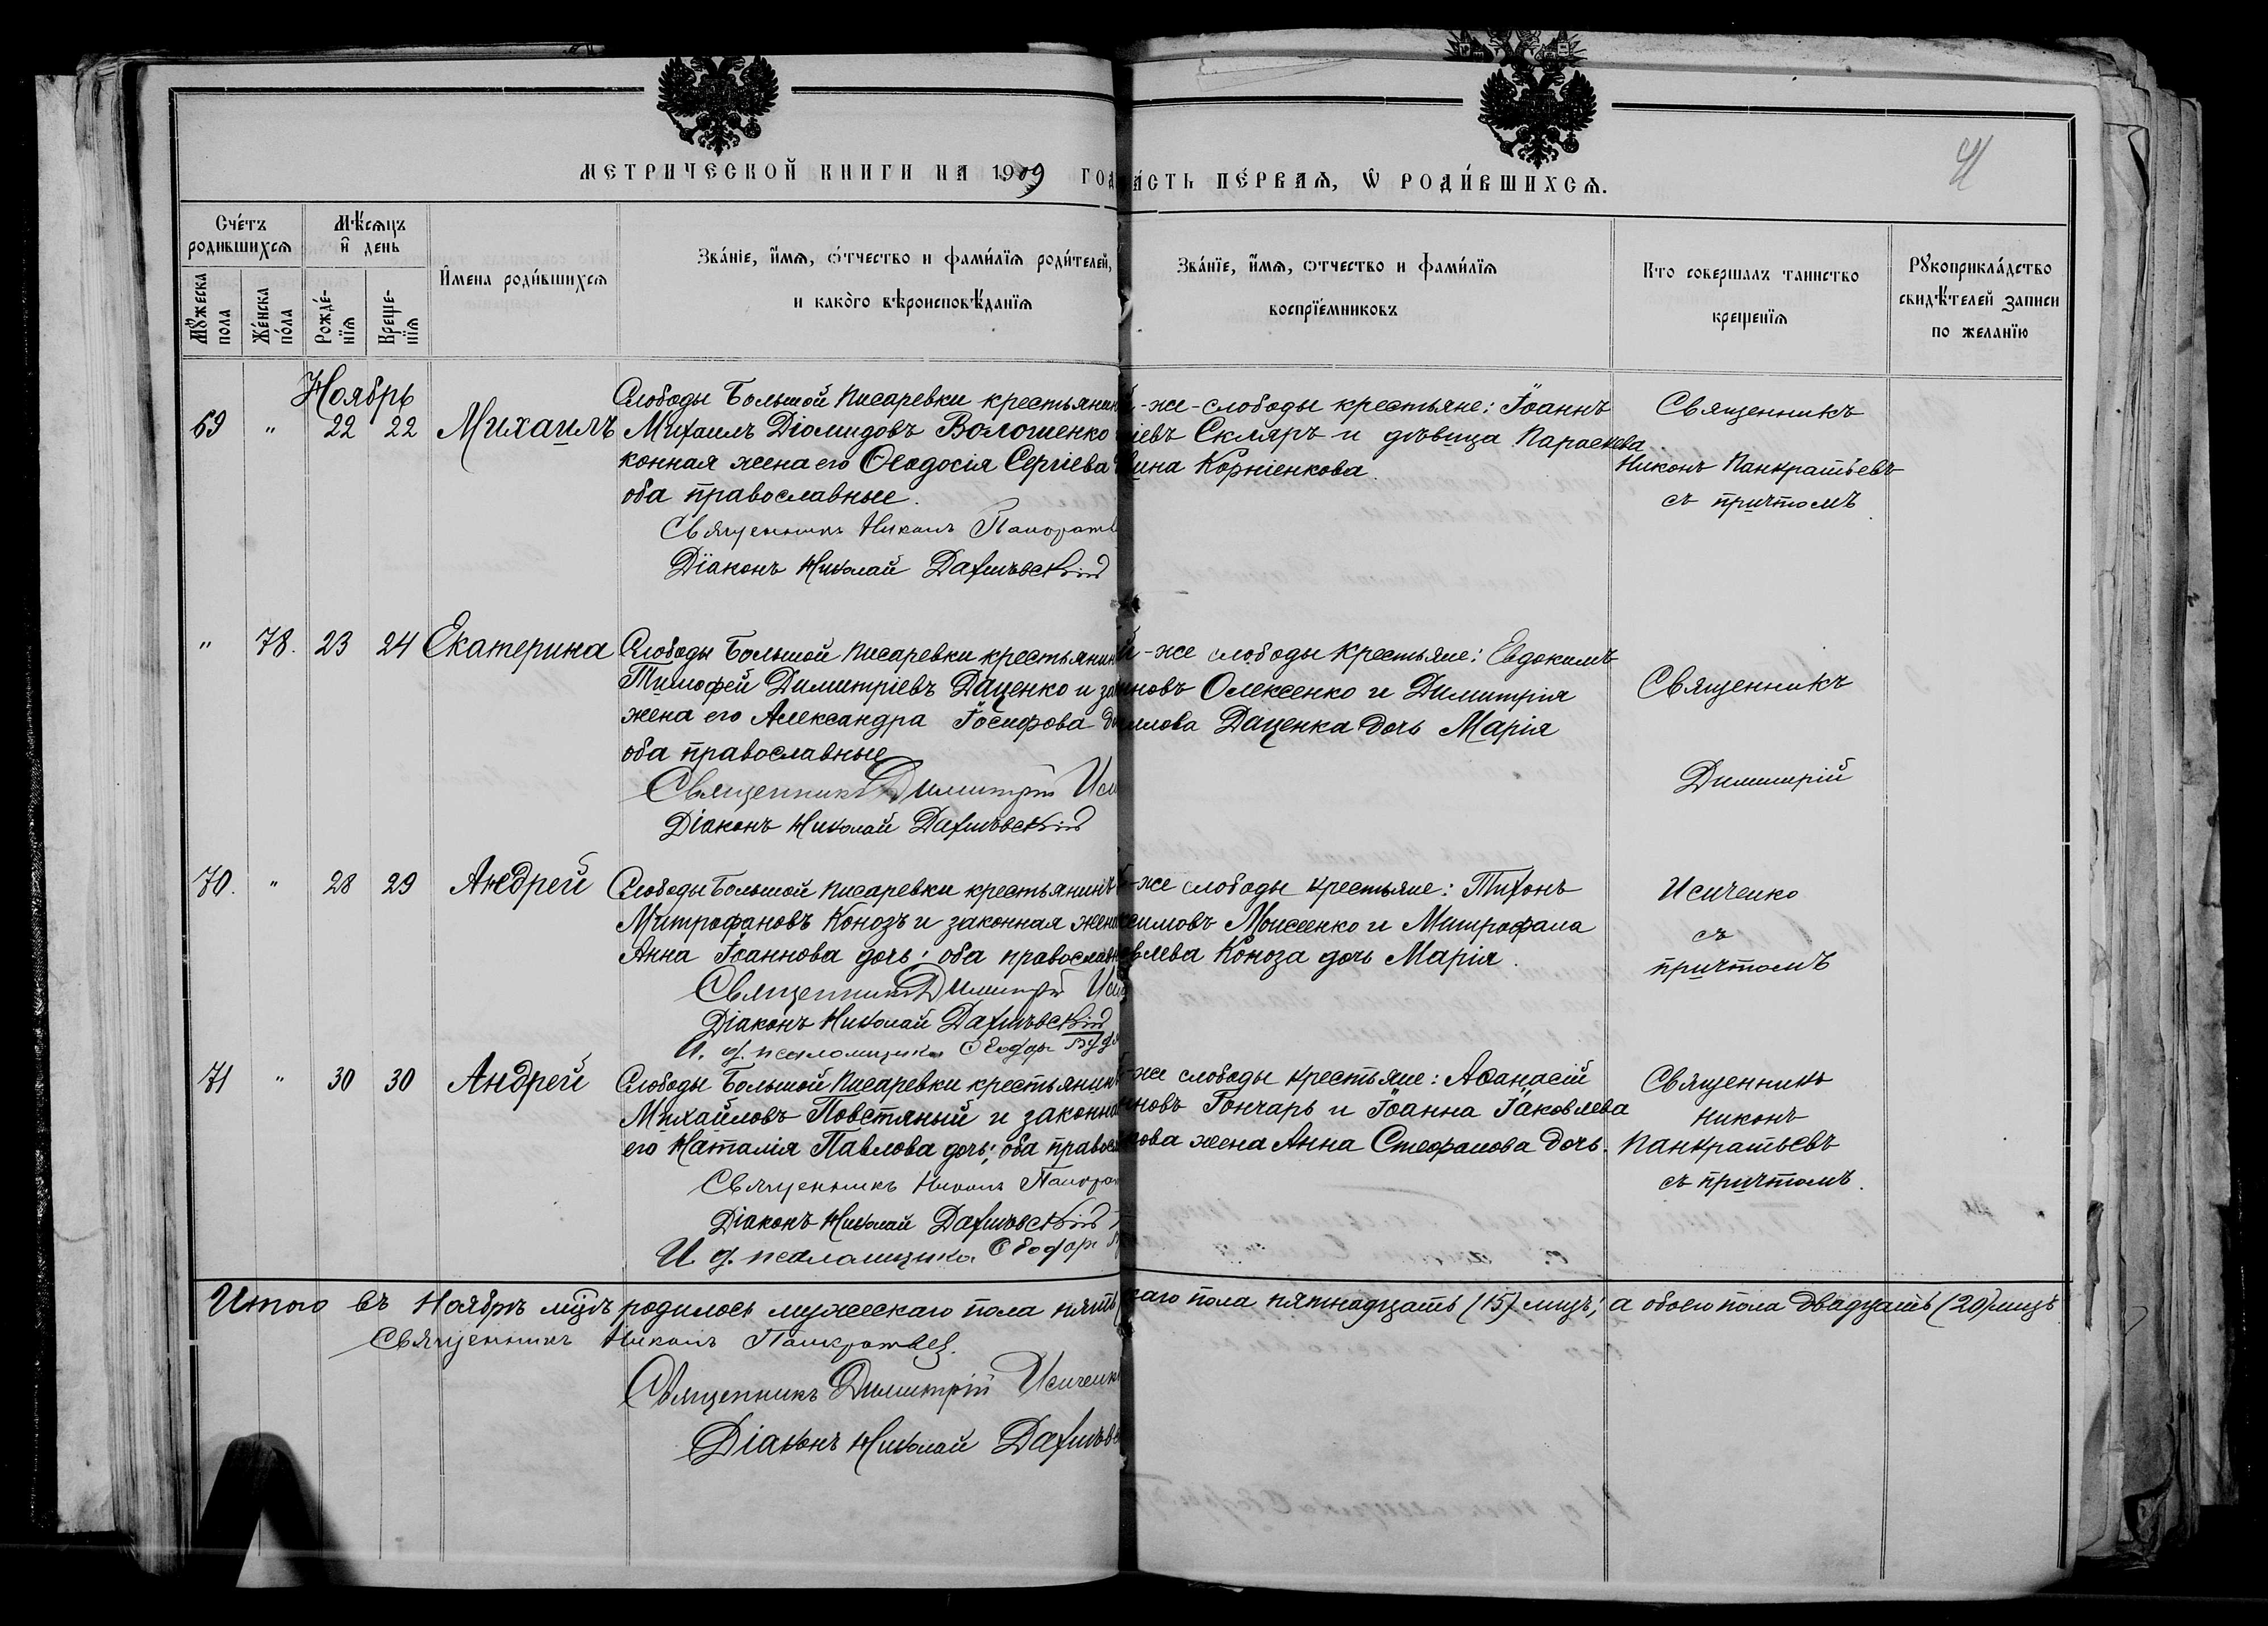 МЕТРИЧЕСКОЙ КНИГИ НА 1909 ГОД
ЧАСТЬ ПЕ́РВАЯ, Ѡ РОДИ́ВШИХСЯ.
Сче́тъ родившихся
Мѣ́сяцъ и день
Мꙋжеска пола
Же́нска по́ла
Рожде́-нїя
Креще-нїя
Имена роди́вшихся
Зва́нїе, и́мя, ѻ́тчество и фами́лїя роди́телей,
и како́го вѣроисповѣ́данїя
Зва́нїе, и́мя, ѻтчество и фами́лїя
воспрїе́мниковъ
Кто совершалъ таинство
крещенїя
Рꙋкоприкла́дство
свидѣ́телей записи
по желанїю
Ноябрь
69 " 22 22 Михаилъ
Слободы Большой Писаревки крестьянин
Михаилъ Діомидовъ Волошенко
конная жена его Ѳеодосія Сергіева
оба православные.
Священникъ Никонъ Панкратьев
Діаконъ Николай
-же-слободы крестьяне: Іоаннъ
іевъ Скляръ и дѣвица Параскева
ина Корніенкова.
Священникъ
Никонъ Панкратьевъ
съ причтомъ
" 78. 23 24 Екатерина
Слободы Большой Писаревки крестьянин
Тимофей Димитріевъ Даценко и за
жена его Александра Іосифова
оба православные
Священникъ Димитрій Иси
Діаконъ Николай
й-же слободы крестьяне: Евдокимъ
новъ Олексенко и Димитрія
илова Даценка дочь Марія
Священникъ
Димитрій
70. " 28 29 Андрей
Слободы Большой Писаревки крестьянинъ
Митрофановъ Конозъ и законная жена
Анна Іоаннова дочь; оба православн
Священникъ Димитрій Иси
Діаконъ Николай
И. д. псаломщика Ѳеодоръ
-же слободы крестьяне: Тихонъ
ксимовъ Моисеенко и Митрофана
влева Коноза дочь Марія.
Исиченко
съ
причтомъ
71 " 30 30 Андрей
Слободы Большой Писаревки крестьянин
Михайловъ Повстяный и законна
его Наталія Павлова дочь; оба правос
Священникъ Никонъ Панкрат
Діаконъ Николай
И. д. псаломщика Ѳеодоръ
-же слободы крестьяне: Аѳанасій
новъ Гончаръ и Іоанна Іаковлева
кова жена Анна Стефанова дочь.
Священникъ
Никонъ
Панкратьевъ
съ причтомъ.
Итого въ Ноябрѣ мцѣ родилось мужескаго пола пять
скаго пола пятнадцать (15) лицъ; а обоего пола двадцать (20) лицъ
Священникъ Никонъ Панкратьевъ.
Священникъ Димитрій Исиченк
Діаконъ Николай